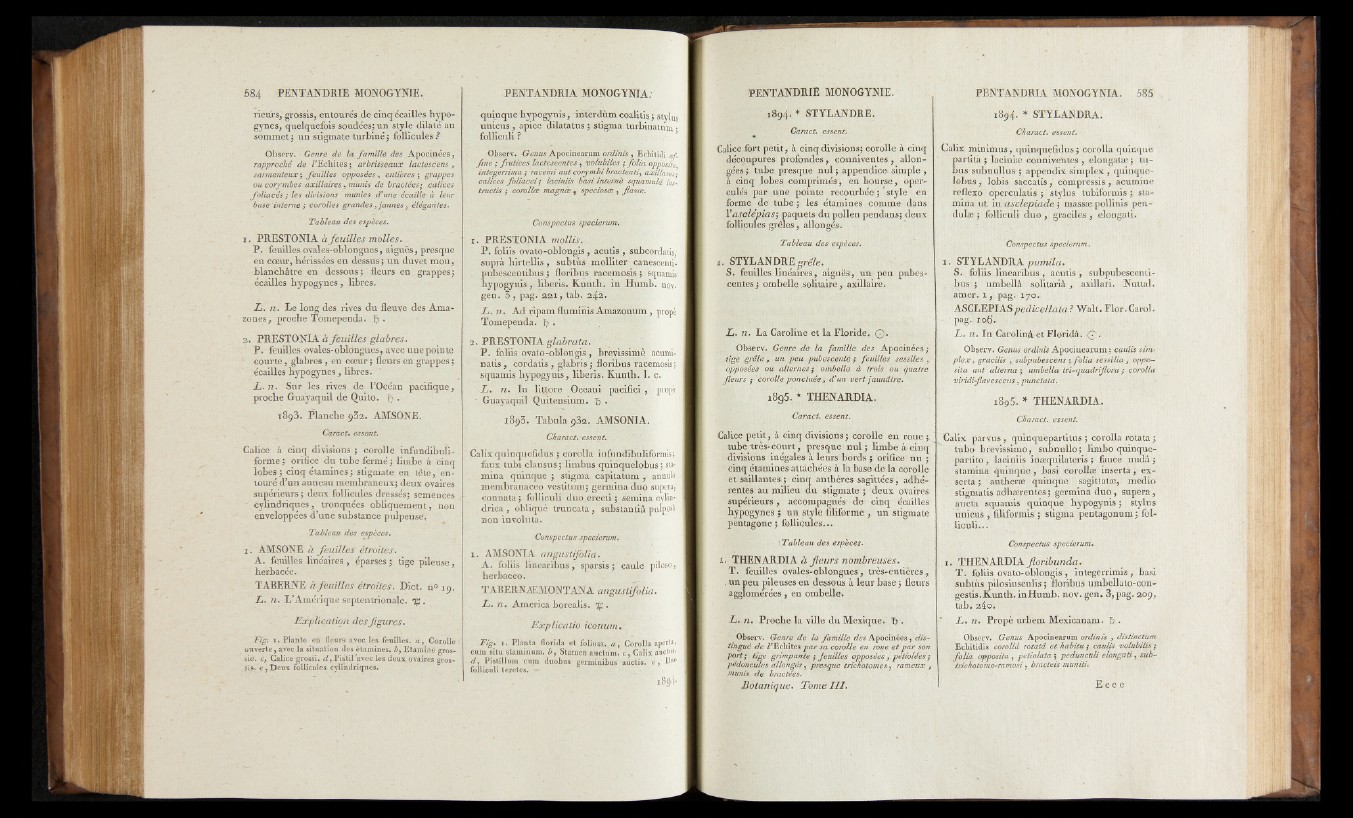 584 PENTANDRIE MONOGYNIE.
rieurs, grossis, entourés de cinq écailles hypo-
gynes, quelquefois soudées; un style dilaté au
sommet; un stigmate turbiné; follicules?
Observ. Genre de la famille des Apocinées,
rapproché de l'Echites; arbrisseaux lactescens,
sarmenteux; feuilles opposées, entières; grappes
ou corymbes axillaires, munis de bractées; calices
foliacés; les divisions munies d'une écaille à leur
base interne; corolles grandes, jaunes, élégantes.
Tableau des espèces.
1. PRESTONIA à feuilles molles.
P. feuilles ovales-oblongues, aiguës, presque
en cœur, hérissées en dessus; un duvet mou,
blanchâtre en dessous; fleurs en grappes;
écailles hypogynes, libres.
L. n. Le long des rives du fleuve des Ama-
zones, proche Tomependa. ♄.
2. PRESTONIA à feuilles glabres.
P. feuilles ovales-oblongues, avec une pointe
courte, glabres, en cœur; fleurs en grappes;
écailles hypogynes, libres.
L. n. Sur les rives de l'Océan pacifique,
proche Guayaquil de Quito. ♄.
1893. Planche 932. AMSONE.
Caract. essent.
Calice à cinq divisions; corolle infundibuli-
forme; orifice du tube fermé; limbe à cinq
lobes; cinq étamines; stigmate en tête, en-
touré d'un anneau membraneux; deux ovaires
supérieurs; deux follicules dressés; semences
cylindriques, tronquées obliquement, non
enveloppées d'une substance pulpeuse.
Tableau des espèces.
1. AMSONE à feuilles étroites.
A. feuilles linéaires, éparses; tige pileuse,
herbacée.
TABERNE à feuilles étroites. Dict. n° 19.
L. n. L'Amérique septentrionale. ♃.
Explication des figures.
Fig. 1. Plante en fleurs avec les feuilles. a, Corolle
ouverte, avec la situation des étamines. b, Etamine gros-
sie. c, Calice grossi. d, Pistil avec les deux ovaires gros-
sis. e, Deux follicules cylindriques.
PENTANDRIA MONOGYNIA.
quinque hypogynis, interdùm coalitis; stylus
unicus, apice dilatatus; stigma turbinatum;
folliculi?
Observ. Genus Apocinearum ordinis, Echitidi af-
fine; frutices lactescentes, volubiles; folia opposita,
integerrima; racemi aut corymbi bracteati, axillares;
calices foliacei; laciniis basi internè squamulâ ins-
tructis; corollæ magnæ, speciosæ, flavæ.
Conspectus specierum.
1. PRESTONIA mollis.
P. foliis ovato-oblongis, acutis, subcordatis,
suprà hirtellis, subtùs molliter canescenti-
pubescentibus; floribus racemosis; squamis
hypogynis, liberis. Kunth. in Humb. nov.
gen. 3, pag. 221, tab. 242.
L. n. Ad ripam fluminis Amazonum, propè
Tomependa. ♄.
2. PRESTONIA glabrata.
P. foliis ovato-oblongis, brevissimè acumi-
natis, cordatis, glabris; floribus racemosis;
squamis hypogynis, liberis. Kunth. l. c.
L. n. In littore Oceani pacifici, propè
Guayaquil Quitensium. ♄.
1893. Tabula 932. AMSONIA.
Charact. essent.
Calix quinquefidus; corolla infundibuliformis;
faux tubi clausus; limbus quinquelobus; sta-
mina quinque; stigma capitatum, annulo
membranaceo vestitum; germina duo supera,
connata; folliculi duo erecti; semina cylin-
drica, obliquè truncata, substantiâ pulposâ
non involuta.
Conspectus specierum.
1. AMSONIA angustifolia.
A. foliis linearibus, sparsis; caule piloso,
herbaceo.
TABERNÆMONTANA angustifolia.
L. n. America borealis. ♃.
Explicatio iconum.
Fig. 1. Planta florida et foliosa. a, Corolla aperta,
cum situ staminum. b, Stamen auctum. c, Calix auctus.
d, Pistillum cum duobus germinibus auctis. e, Duo
folliculi teretes.
1894.
PENTANDRIE MONOGYNIE.
1894. * STYLANDRE.
Caract. essent.
Calice fort petit, à cinq divisions; corolle à cinq
découpures profondes, conniventes, allon-
gées; tube presque nul; appendice simple,
à cinq lobes comprimés, en bourse, oper-
culés par une pointe recourbée; style en
forme de tube; les étamines comme dans
l'asclépias; paquets du pollen pendans; deux
follicules grêles, allongés.
Tableau des espèces.
1. STYLANDRE grêle.
S. feuilles linéaires, aiguës, un peu pubes-
centes; ombelle solitaire, axillaire.
L. n. La Caroline et la Floride. ☉.
Observ. Genre de la famille des Apocinées;
tige grêle, un peu pubescente; feuilles sessiles,
opposées ou alternes; ombelle à trois ou quatre
fleurs; corolle ponctuée, d'un vert jaunâtre.
1895. * THENARDIA.
Caract. essent.
Calice petit, à cinq divisions; corolle en roue;
tube très-court, presque nul; limbe à cinq
divisions inégales à leurs bords; orifice nu;
cinq étamines attachées à la base de la corolle
et saillantes; cinq anthères sagittées, adhé-
rentes au milieu du stigmate; deux ovaires
supérieurs, accompagnés de cinq écailles
hypogynes; un style filiforme, un stigmate
pentagone; follicules...
Tableau des espèces.
1. THENARDIA à fleurs nombreuses.
T. feuilles ovales-oblongues, très-entières,
un peu pileuses en dessous à leur base; fleurs
agglomérées, en ombelle.
L. n. Proche la ville du Mexique. ♄.
Observ. Genre de la famille des Apocinées, dis-
tingué de l'Echites par sa corolle en roue et par son
port; tige grimpante; feuilles opposées, pétiolées;
pédoncules allongés, presque trichotomes, rameux,
munis de bractées.
Botanique. Tome III.
PENTANDRIA MONOGYNIA. 585
1894. * STYLANDRA.
Charact. essent.
Calix minimus, quinquefidus; corolla quinque
partita; laciniæ conniventes, elongatæ; tu-
bus subnullus; appendix simplex, quinque-
lobus, lobis saccatis, compressis, acumine
reflexo operculatis; stylus tubiformis; sta-
mina ut in asclepiade; massæ pollinis pen-
dulæ; folliculi duo, graciles, elongati.
Conspectus specierum.
1. STYLANDRA pumila.
S. foliis linearibus, acutis, subpubescenti-
bus; umbellâ solitariâ, axillari. Nuttal.
amer. 1, pag. 170.
ASCLEPIAS pedicellata? Walt. Flor. Carol.
pag. 106.
L. n. In Carolinâ et Floridâ. ☉.
Observ. Genus ordinis Apocinearum; caulis sim-
plex, gracilis, subpubescens; folia sessilia, oppo-
sita aut alterna; umbella tri-quadriflora; corolla
viridi-flavescens, punctata.
1895. * THENARDIA.
Charact. essent.
Calix parvus, quinquepartitus; corolla rotata;
tubo brevissimo, subnullo; limbo quinque-
partito, laciniis inæquilateris; fauce nudâ;
stamina quinque, basi corollæ inserta, ex-
serta; antheræ quinque sagittatæ, medio
stigmatis adhærentes; germina duo, supera,
aucta squamis quinque hypogynis; stylus
unicus, filiformis; stigma pentagonum; fol-
liculi...
Conspectus specierum.
1. THENARDIA floribunda.
T. foliis ovato-oblongis, integerrimis, basi
subtùs pilosiusculis; floribus umbellato-con-
gestis. Kunth. in Humb. nov. gen. 3, pag. 209,
tab. 240.
L. n. Propè urbem Mexicanam. ♄.
Observ. Genus Apocinearum ordinis, distinctum
Echitidis corollâ rotatâ et habitu; caulis volubilis;
folia opposita, petiolata; pedunculi elongati, sub-
trichotomo-ramosi, bracteis muniti.
Eeee